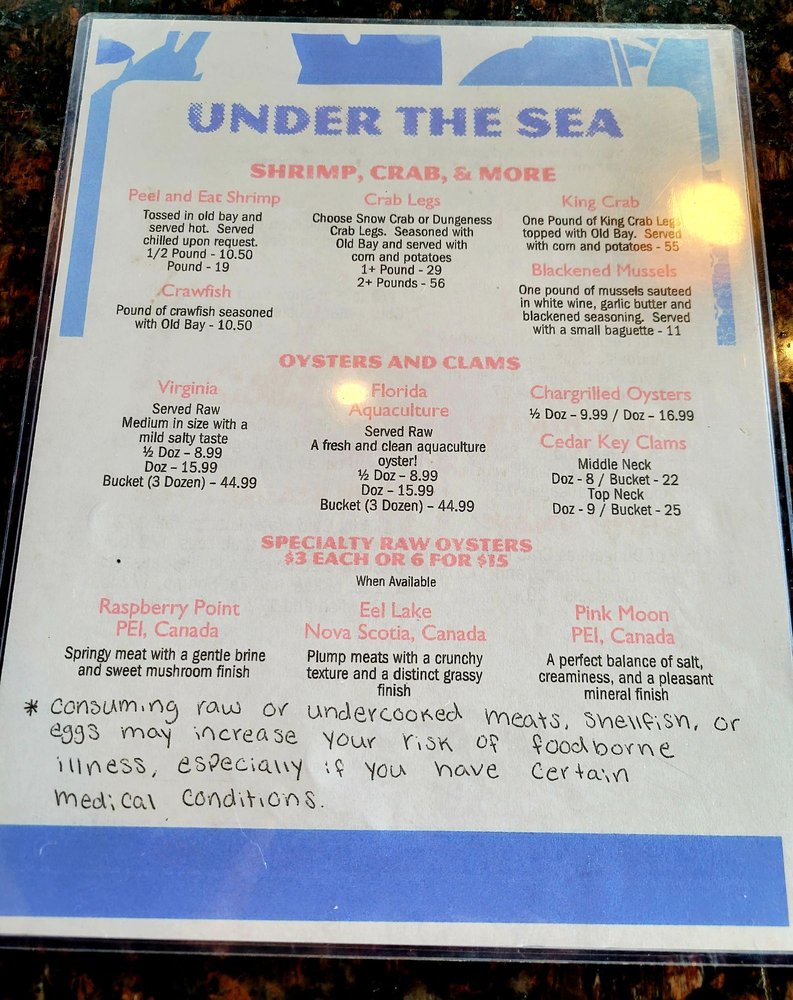 UNDER THE SEA
SHRIMP, CRAB, & MORE
Peel and Eat Shrimp
Tossed in old bay and
served hot. Served
chilled upon request.
1/2 Pound - 10.50
Pound - 19
Crawfish
Pound of crawfish seasoned
with Old Bay - 10.50
Crab Legs
Choose Snow Crab or Dungeness
Crab Legs. Seasoned with
Old Bay and served with
corn and potatoes
1+ Pound - 29
2+ Pounds - 56
King Crab
One Pound of King Crab Legs
topped with Old Bay. Served
with corn and potatoes - 55
Blackened Mussels
One pound of mussels sauteed
in white wine, garlic butter and
blackened seasoning. Served
with a small baguette - 11
OYSTERS AND CLAMS
Virginia
Served Raw
Medium in size with a
mild salty taste
½ Doz – 8.99
Doz – 15.99
Bucket (3 Dozen) – 44.99
Florida
Aquaculture
Served Raw
A fresh and clean aquaculture
oyster!
½ Doz – 8.99
Doz – 15.99
Bucket (3 Dozen) – 44.99
Chargrilled Oysters
½ Doz – 9.99 / Doz - 16.99
Cedar Key Clams
Middle Neck
Doz - 8 / Bucket - 22
Top Neck
Doz - 9 / Bucket - 25
SPECIALTY RAW OYSTERS
$3 EACH OR 6 FOR $15
When Available
Raspberry Point
PEI, Canada
Springy meat with a gentle brine
and sweet mushroom finish
Eel Lake
Nova Scotia, Canada
Plump meats with a crunchy
texture and a distinct grassy
finish
Pink Moon
PEI, Canada
A perfect balance of salt,
creaminess, and a pleasant
mineral finish
* consuming raw or undercooked meats, shellfish, or
eggs may increase your risk of foodborne
illness, especially if you have certain
medical conditions.